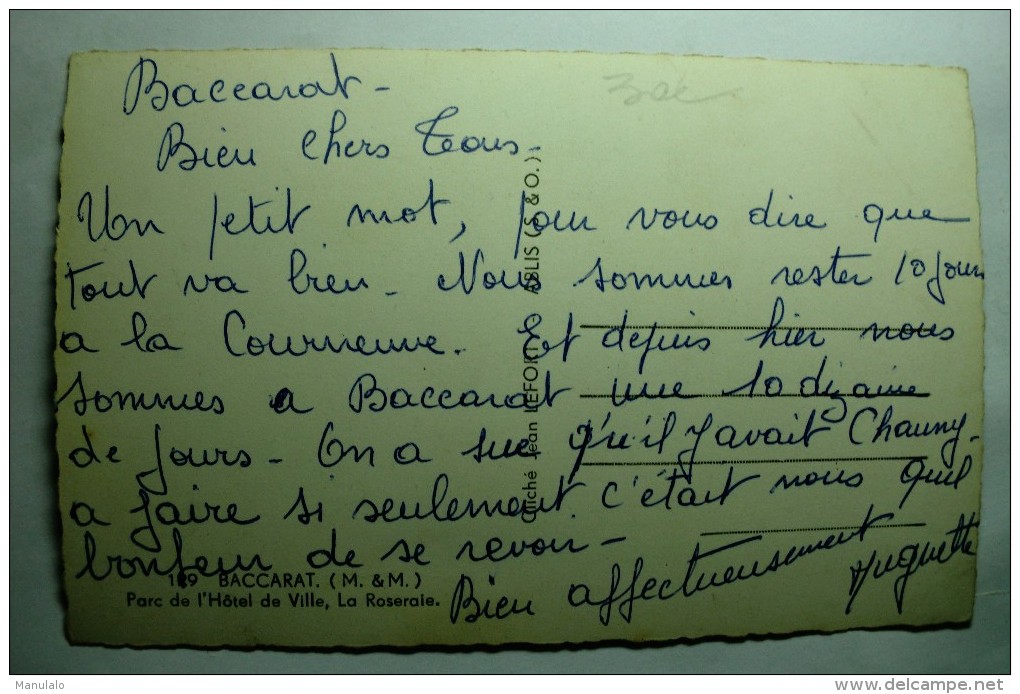 Baccarat -
Bien Chers Tous -
Un petit mot, pour vous dire que
tout va bien - Nous sommes rester 10 jours
a la Courneuve. Et depuis hier nous
sommes a Baccarat une 10 dizaine
de jours - On a sue qu'il y avait Chauny -
a faire si seulement c'était nous quil
bonheur de se revoir -
Bien affectueusement
Huguette
189 BACCARAT. (M. & M.)
Parc de l'Hôtel de Ville, La Roseraie.
Cliché Jean LEFORT - ABLIS (S. & O.)
Manulalo
www.delcampe.net